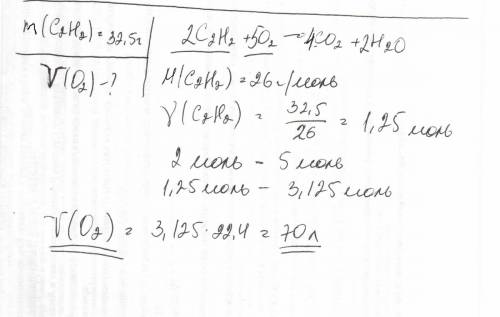 m(C2H2) = 32,5г
V(O2) - ?
2C2H2 + 5O2 → 4CO2 + 2H2O
M(C2H2) = 26 г/моль
γ(C2H2) = 32,5/26 = 1,25 моль
2 моль - 5 моль
1,25 моль - 3,125 моль
V(O2) = 3,125 · 22,4 = 70 л